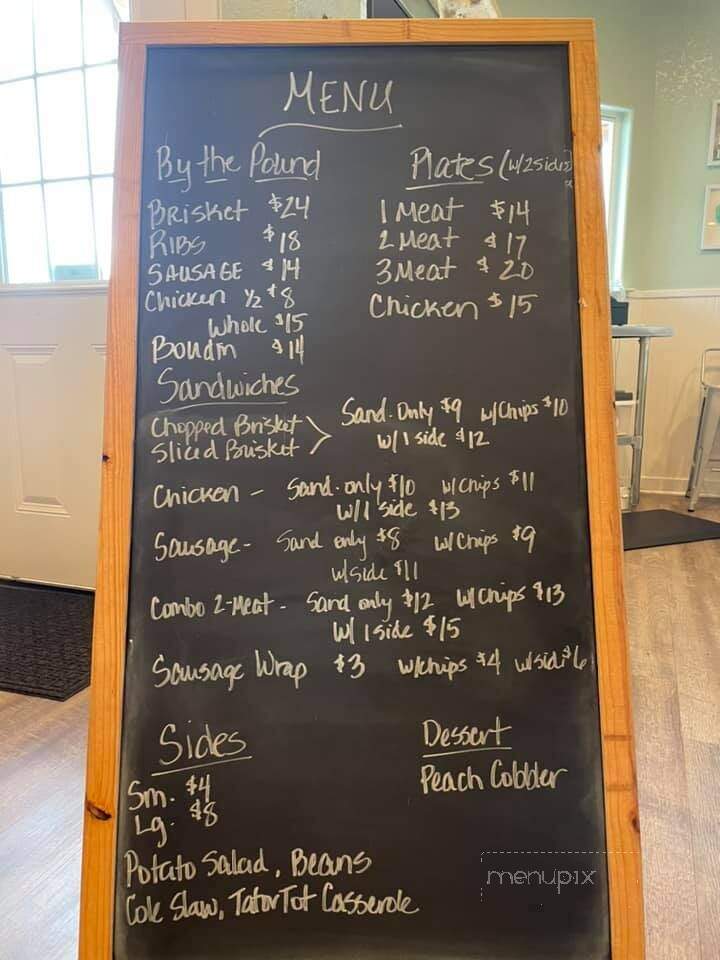 MENU
By the Pound
BRISKET $24
RIBS $18
SAUSAGE $14
Chicken 1/2 $8
Whole $15
Boudin $14
Plates (w/2sides)
1 Meat $14
2 Meat $17
3 Meat $20
Chicken $15
Sandwiches
Chopped Brisket
Sliced Brisket
Sand. Only $9 w/Chips $10
w/1 side $12
Chicken - Sand. only $10 w/Chips $11
w/1 side $13
Sausage - Sand only $8 w/Chips $9
w/side $11
Combo 2-Meat - Sand only $12 w/Chips $13
w/ 1 side $15
Sausage Wrap $3 w/chips $4 w/side $6
Sides
Sm. $4
Lg. $8
Potato Salad, Beans
Cole Slaw, Tator Tot Casserole
Dessert
Peach Cobbler
menupix